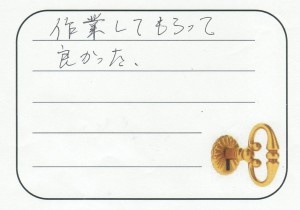 作業してもらって
良かった、